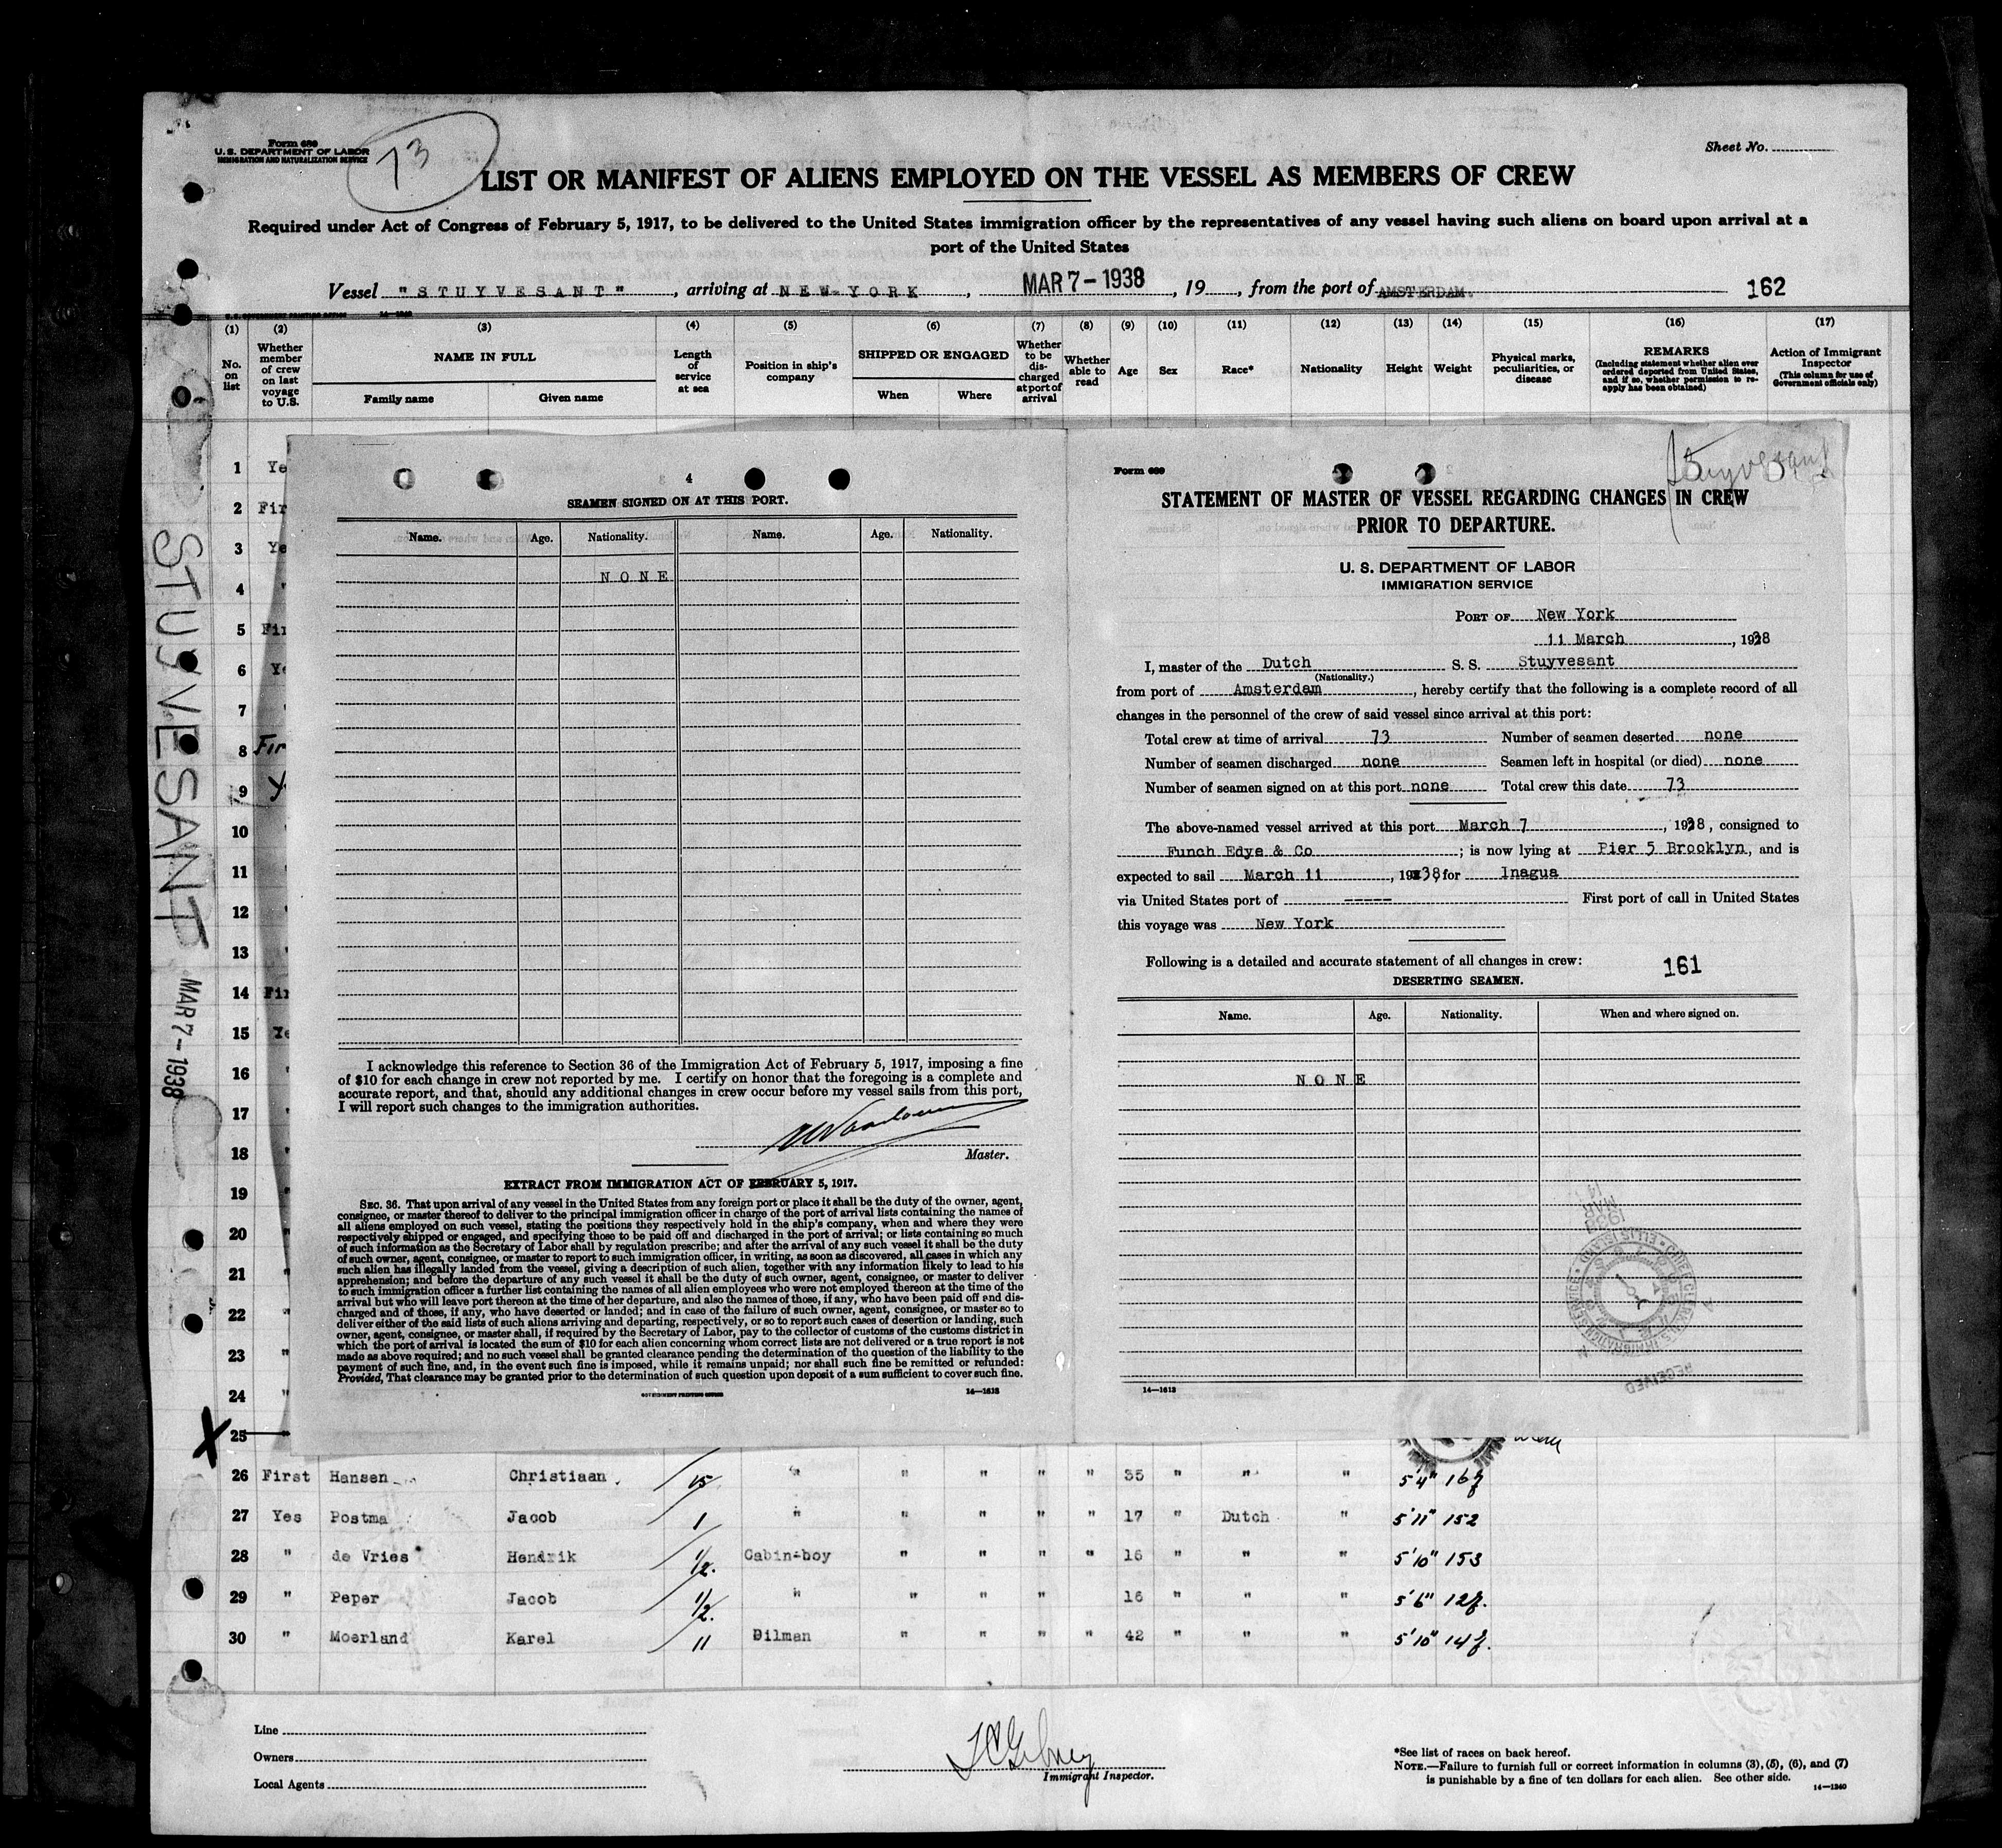 Form 689
U. S. DEPARTMENT OF LABOR
IMMIGRATION AND NATURALIZATION SERVICE
73
Sheet No.
LIST OR MANIFEST OF ALIENS EMPLOYED ON THE VESSEL AS MEMBERS OF CREW
Required under Act of Congress of February 5, 1917, to be delivered to the United States immigration officer by the representatives of any vessel having such aliens on board upon arrival at a
port of the United States
Vessel "STUYVESANT", arriving at NEW-YORK, MAR 7-1938, 19 , from the port of AMSTERDAM. 162
U. S. GOVERNMENT PRINTING OFFICE 14-1240
(1) (2) (3) (4) (5) (6) (7) (8) (9) (10) (11) (12) (13) (14) (15) (16) (17)
No. on list
Whether member of crew on last voyage to U.S.
NAME IN FULL
Family name Given name
Length of service at sea
Position in ship's company
SHIPPED OR ENGAGED
When Where
Whether to be discharged at port of arrival
Whether able to read
Age
Sex
Race*
Nationality
Height
Weight
Physical marks, peculiarities, or disease
REMARKS
(Including statement whether alien ever ordered deported from United States, and if so, whether permission to reapply has been obtained)
Action of Immigrant Inspector
(This column for use of Government officials only)
STUYVESANT MAR 7-1938
1 Ye
2 Fir
3 Ye
4 "
5 Fir
6 Ye
7 "
8 Fir
9 Y
10 "
11 "
12 "
13 "
14 Fir
15 Ye
16 "
17 "
18 "
19 "
20 "
21 "
22 "
23 "
24 "
X 25 "
4
SEAMEN SIGNED ON AT THIS PORT.
Name. Age. Nationality. Name. Age. Nationality.
NONE
I acknowledge this reference to Section 36 of the Immigration Act of February 5, 1917, imposing a fine
of $10 for each change in crew not reported by me. I certify on honor that the foregoing is a complete and
accurate report, and that, should any additional changes in crew occur before my vessel sails from this port,
I will report such changes to the immigration authorities.
Master.
EXTRACT FROM IMMIGRATION ACT OF FEBRUARY 5, 1917.
SEC. 36. That upon arrival of any vessel in the United States from any foreign port or place it shall be the duty of the owner, agent,
consignee, or master thereof to deliver to the principal immigration officer in charge of the port of arrival lists containing the names of
all aliens employed on such vessel, stating the positions they respectively hold in the ship's company, when and where they were
respectively shipped or engaged, and specifying those to be paid off and discharged in the port of arrival; or lists containing so much
of such information as the Secretary of Labor shall by regulation prescribe; and after the arrival of any such vessel it shall be the duty
of such owner, agent, consignee, or master to report to such immigration officer, in writing, as soon as discovered, all cases in which any
such alien has illegally landed from the vessel, giving a description of such alien, together with any information likely to lead to his
apprehension; and before the departure of any such vessel it shall be the duty of such owner, agent, consignee, or master to deliver
to such immigration officer a further list containing the names of all alien employees who were not employed thereon at the time of the
arrival but who will leave port thereon at the time of her departure, and also the names of those, if any, who have been paid off and dis-
charged and of those, if any, who have deserted or landed; and in case of the failure of such owner, agent, consignee, or master so to
deliver either of the said lists of such aliens arriving and departing, respectively, or so to report such cases of desertion or landing, such
owner, agent, consignee, or master shall, if required by the Secretary of Labor, pay to the collector of customs of the customs district in
which the port of arrival is located the sum of $10 for each alien concerning whom correct lists are not delivered or a true report is not
made as above required; and no such vessel shall be granted clearance pending the determination of the question of the liability to the
payment of such fine, and, in the event such fine is imposed, while it remains unpaid; nor shall such fine be remitted or refunded:
Provided, That clearance may be granted prior to the determination of such question upon deposit of a sum sufficient to cover such fine.
GOVERNMENT PRINTING OFFICE 14—1613
Stuyvesant
Form 689
STATEMENT OF MASTER OF VESSEL REGARDING CHANGES IN CREW
PRIOR TO DEPARTURE.
U. S. DEPARTMENT OF LABOR
IMMIGRATION SERVICE
PORT OF New York
11 March, 1938
I, master of the Dutch S. S. Stuyvesant
(Nationality.)
from port of Amsterdam, hereby certify that the following is a complete record of all
changes in the personnel of the crew of said vessel since arrival at this port:
Total crew at time of arrival 73 Number of seamen deserted none
Number of seamen discharged none Seamen left in hospital (or died) none
Number of seamen signed on at this port none Total crew this date 73
The above-named vessel arrived at this port March 7, 1938, consigned to
Funch Edye & Co; is now lying at Pier 5 Brooklyn, and is
expected to sail March 11, 1938, for Inagua
via United States port of ----- First port of call in United States
this voyage was New York
Following is a detailed and accurate statement of all changes in crew: 161
DESERTING SEAMEN.
Name. Age. Nationality. When and where signed on.
NONE
14 MAR 1938
ELLIS ISLAND
RECEIVED
14—1613
26 First Hansen Christiaan 15 " " " " " 35 " " " 5'4"
27 Yes Postma Jacob 1 " " " " " 17 " Dutch " 5'11" 152
28 " de Vries Hendrik 1/2. Cabin-boy " " " " 16 " " " 5'10" 153
29 " Peper Jacob 1/2. " " " " 16 " " " 5'6"
30 " Moerland Karel 11 Oilman " " " " 42 " " " 5'10"
Line
Owners
Local Agents
Immigrant Inspector.
*See list of races on back hereof.
NOTE.—Failure to furnish full or correct information in columns (3), (5), (6), and (7)
is punishable by a fine of ten dollars for each alien. See other side.
14—1240